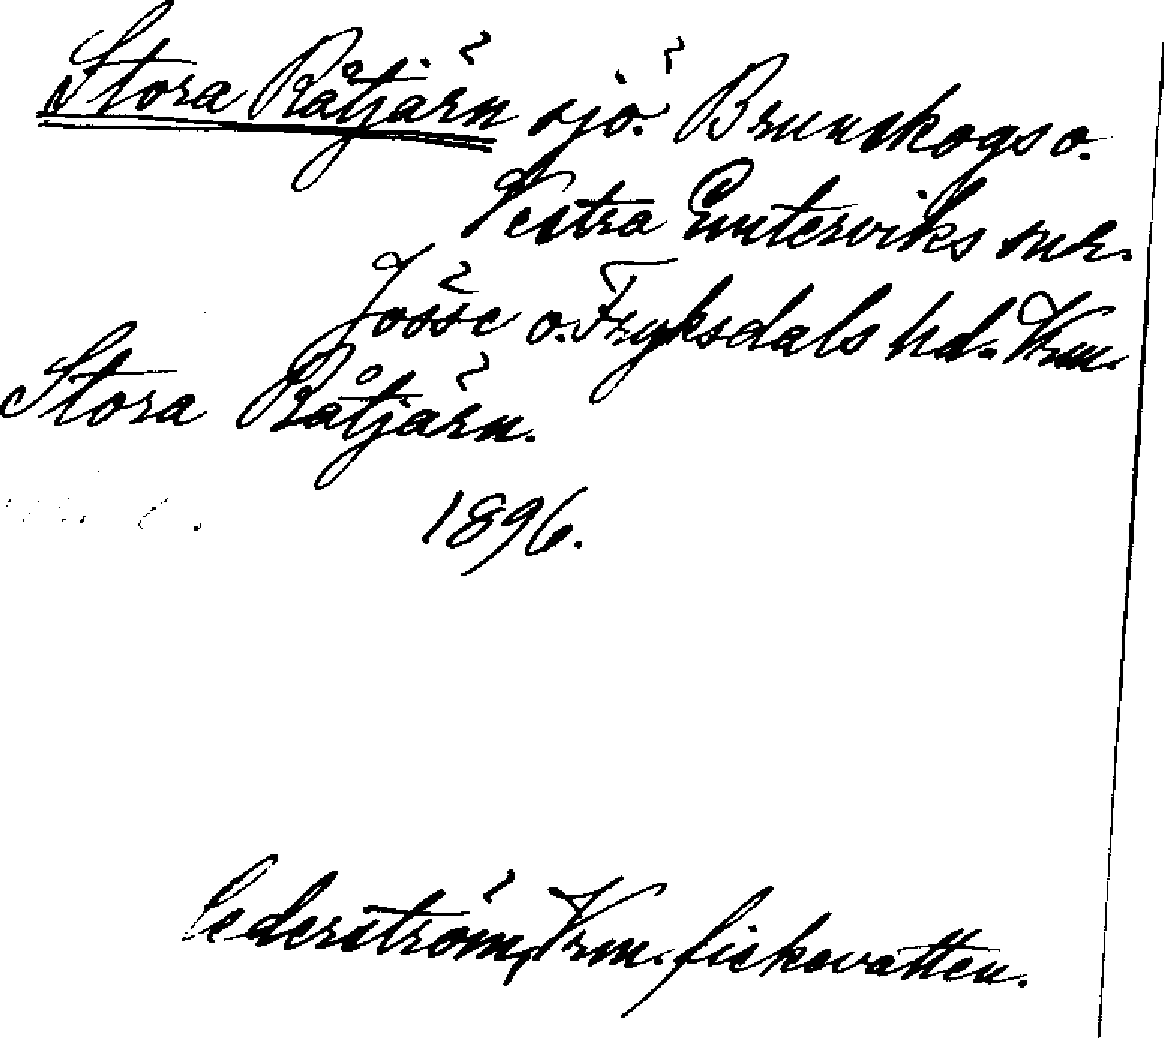 Stora Råtjärn sjö. Brunskogs o.
Vestra Emterviks snr.
Jösse o. Fryksdals hd. Vrm.
Stora Råtjärn.
1896.
Cederström, Vrm. fiskevatten.